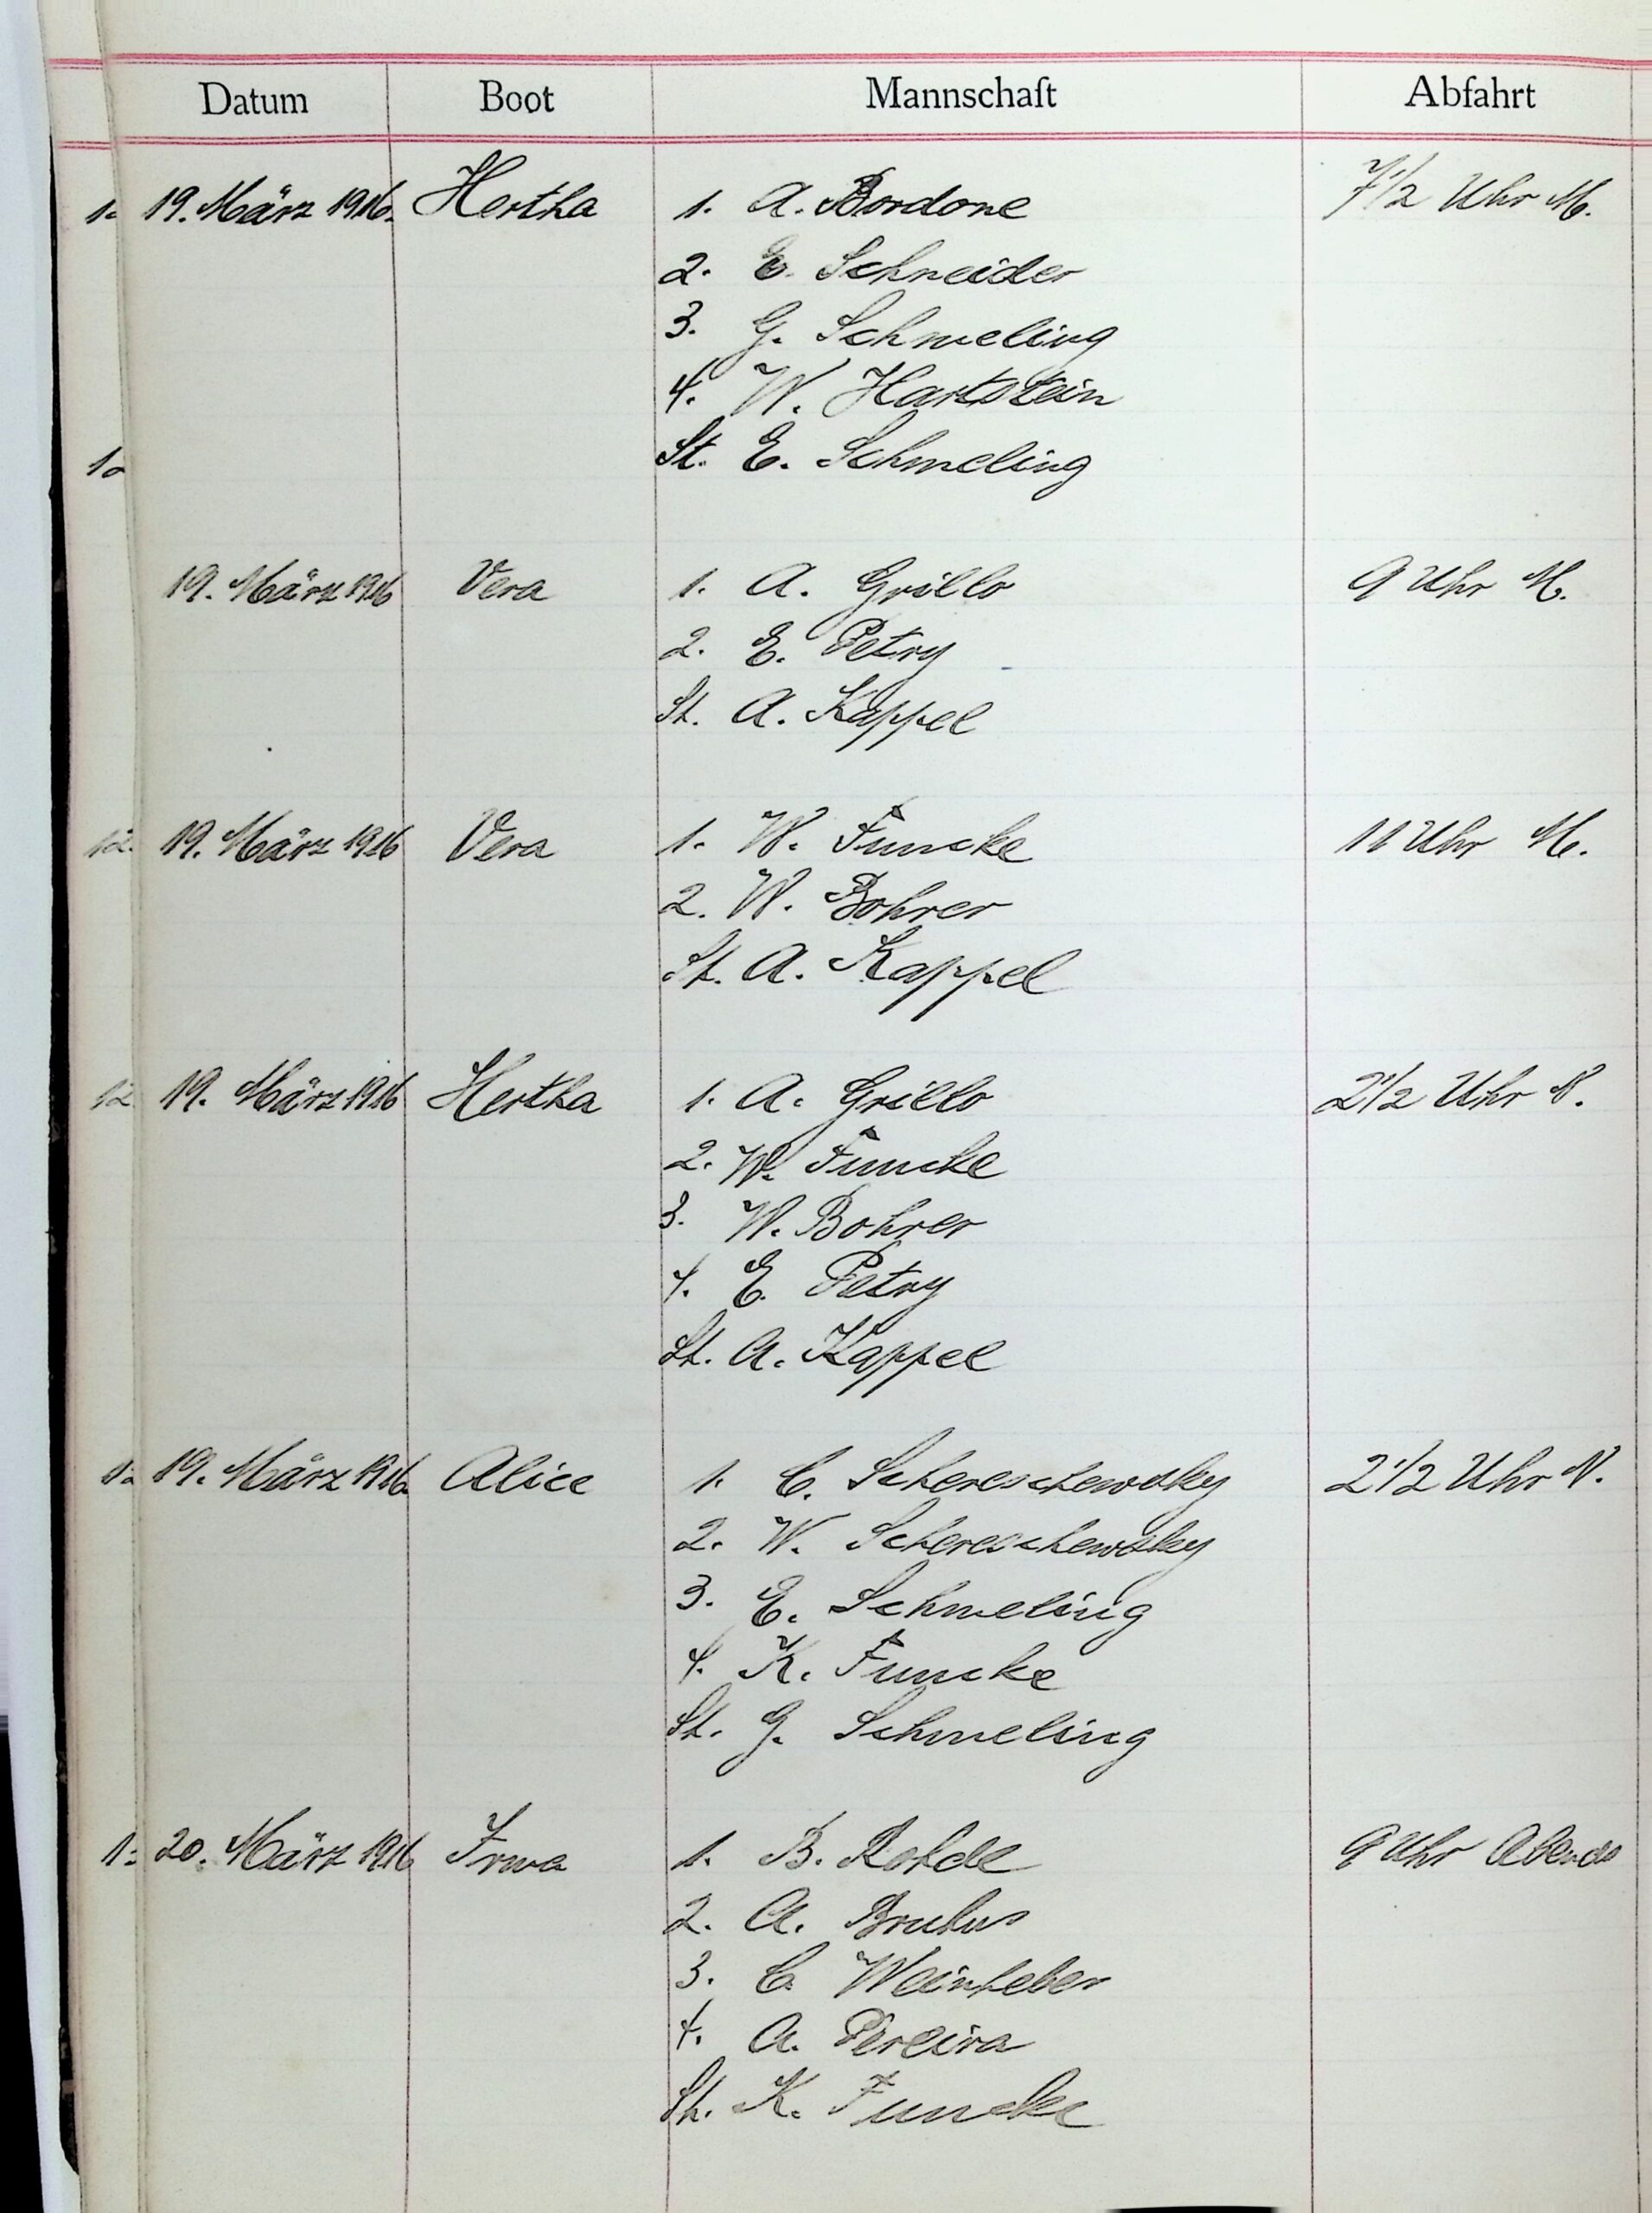 Datum Boot Mannschaft Abfahrt
19. März 1916. Hertha 1. A. Bordone 7 1/2 Uhr M.
2. E. Schneider
3. G. Schmeling
4. W. Hartstein
St. E. Schmeling
19. März 1916 Vera 1. A. Grillo 9 Uhr M.
2. E. Petry
St. A. Kappel
19. März 1916 Vera 1. W. Funcke 11 Uhr M.
2. W. Bohrer
St. A. Kappel
19. März 1916 Hertha 1. A. Grillo 2 1/2 Uhr N.
2. W. Funcke
3. W. Bohrer
4. E. Petry
St. A. Kappel
19. März 1916. Alice 1. C. Schereschewsky 2 1/2 Uhr N.
2. W. Schereschewsky
3. E. Schmeling
4. K. Funcke
St. G. Schmeling
20. März 1916 Irma 1. B. Rohde 9 Uhr Abends
2. A. Brutus
3. C. Weinheber
4. A. Pereira
St. K. Funcke